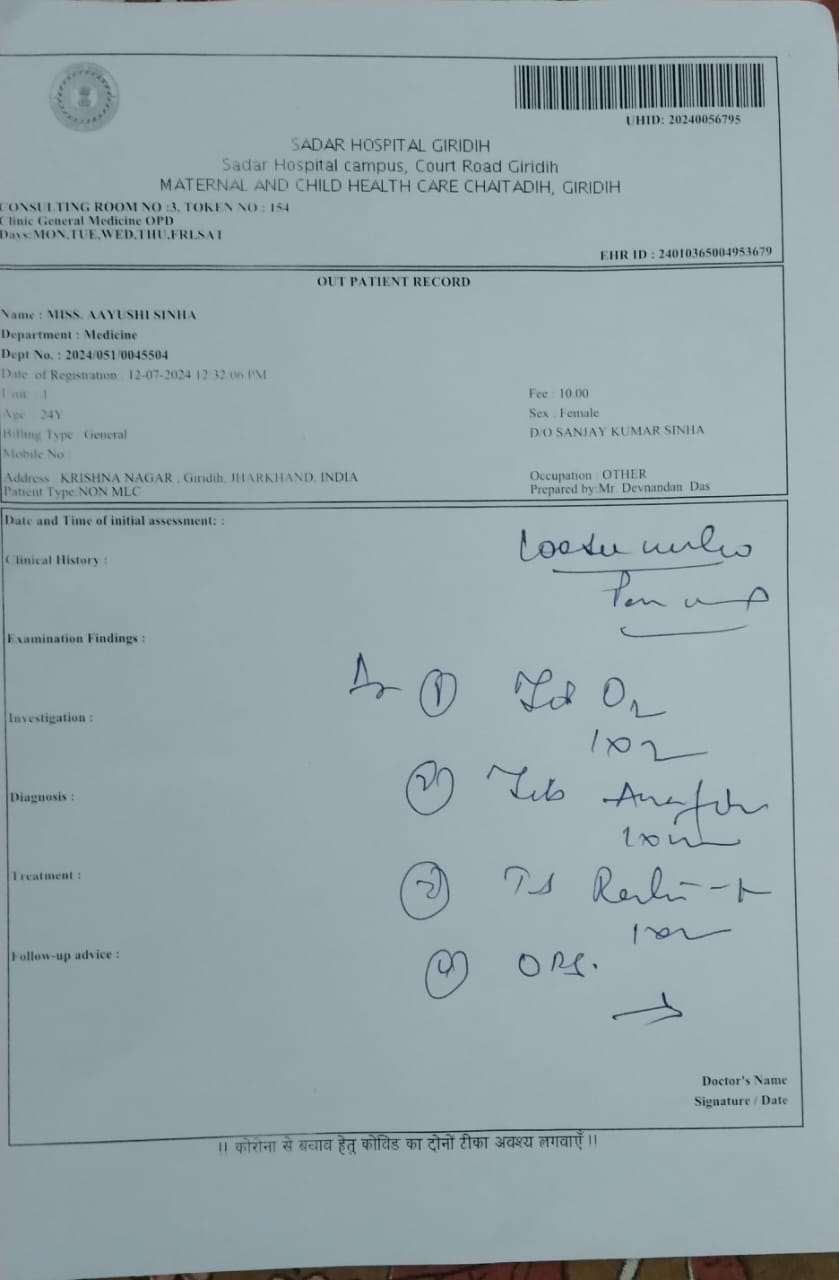 UHID: 20240056795
SADAR HOSPITAL GIRIDIH
Sadar Hospital campus, Court Road Giridih
MATERNAL AND CHILD HEALTH CARE CHAITADIH, GIRIDIH
CONSULTING ROOM NO :3, TOKEN NO : 154
Clinic General Medicine OPD
Days:MON,TUE,WED,THU,FRI,SAT
EHR ID : 24010365004953679
OUT PATIENT RECORD
Name : MISS. AAYUSHI SINHA
Department : Medicine
Dept No. : 2024/051/0045504
Date of Registration : 12-07-2024 12:32:06 PM
Unit : 1
Fee : 10.00
Age : 24Y
Sex : Female
Billing Type : General
D/O SANJAY KUMAR SINHA
Mobile No
Address : KRISHNA NAGAR , Giridih, JHARKHAND, INDIA
Occupation : OTHER
Patient Type:NON MLC
Prepared by:Mr. Devnandan Das
Date and Time of initial assessment: :
Clinical History :
Loose
Examination Findings :
① O2
1x2
Investigation :
② Tab
Diagnosis :
Treatment :
Follow-up advice :
ORS.
Doctor's Name
Signature / Date
|| कोरोना से बचाव हेतू कोविड का दोनों टीका अवश्य लगवाएँ ||